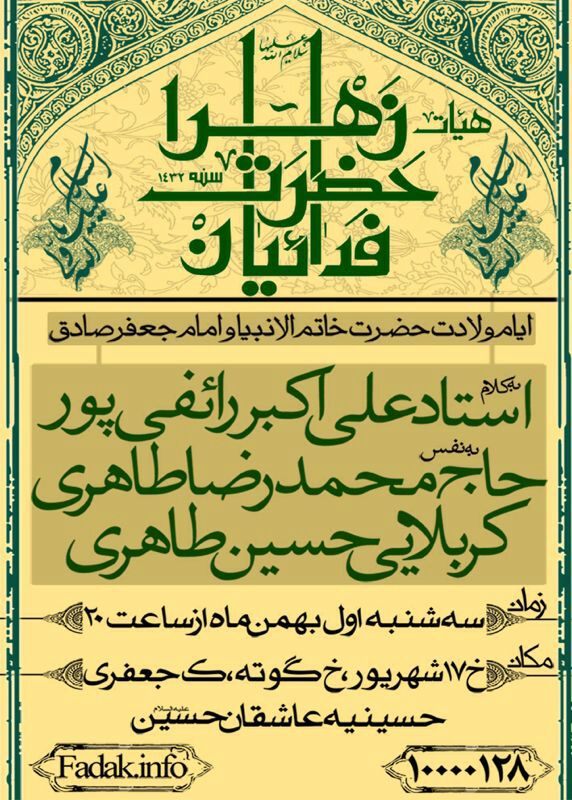 هیات
فدائیان حضرت زهرا
سلام الله علیها
سنه ۱۴۳۲
ایام ولادت حضرت خاتم الانبیا و امام جعفر صادق
به کلام
استاد علی اکبر رائفی پور
به نفس
حاج محمدرضا طاهری
کربلایی حسین طاهری
زمان
سه شنبه اول بهمن ماه از ساعت ۲۰
مکان
خ ۱۷ شهریور، خ گوته، ک جعفری
حسینیه عاشقان حسین علیه السلام
۱۰۰۰۰۱۲۸
Fadak.info